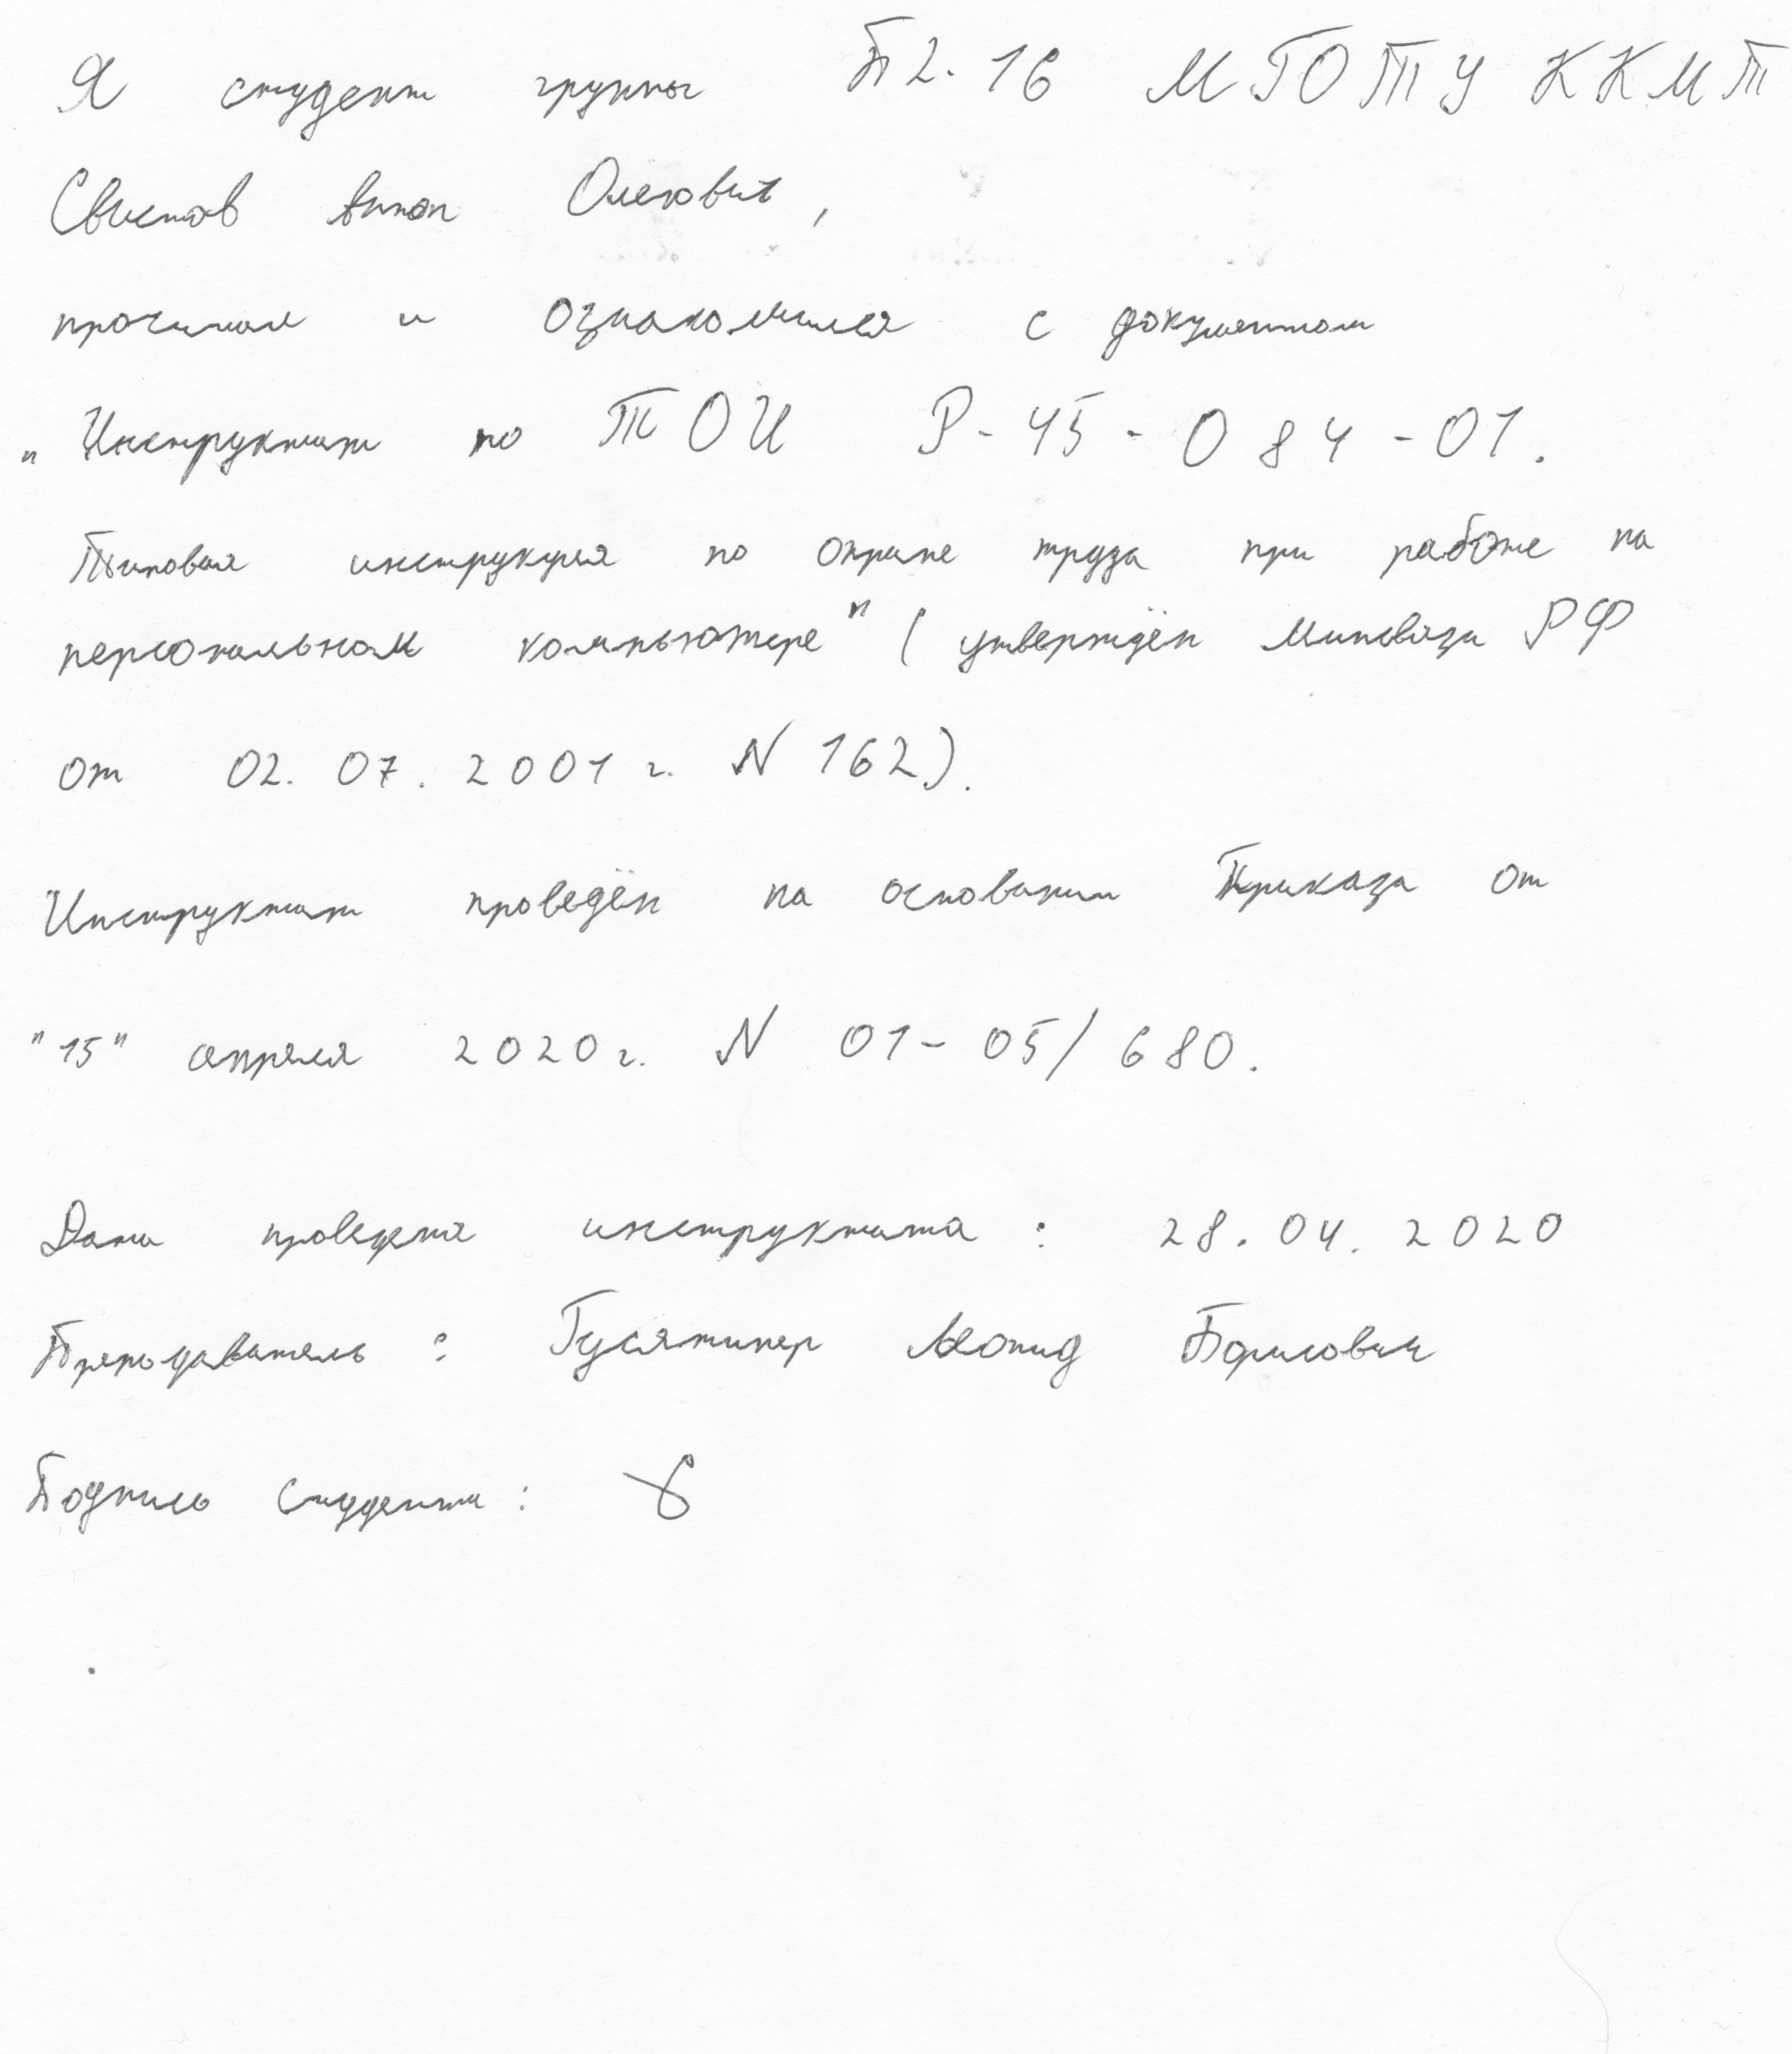 Я студент группы П2-16 МГОТУ ККМТ
Свистов Антон Олегович,
прочитал и ознакомился с документом
"Инструктаж по ТОИ Р-45-084-01.
Типовая инструкция по охране труда при работе на
персональном компьютере" (утверждён Минсвязи РФ
от 02.07.2001 г. N 162).
Инструктаж проведён на основании Приказа от
"15" апреля 2020 г. N 01-05/680.
Дата инструктажа: 28.04.2020
Преподаватель: Гусятинер Леонид Борисович
Подпись студента: